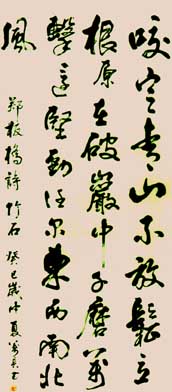 咬定青山不放鬆立
根原在破巖中千磨萬
擊還堅勁任尔東西南北
風
鄭板橋詩 竹石 癸巳歲仲夏